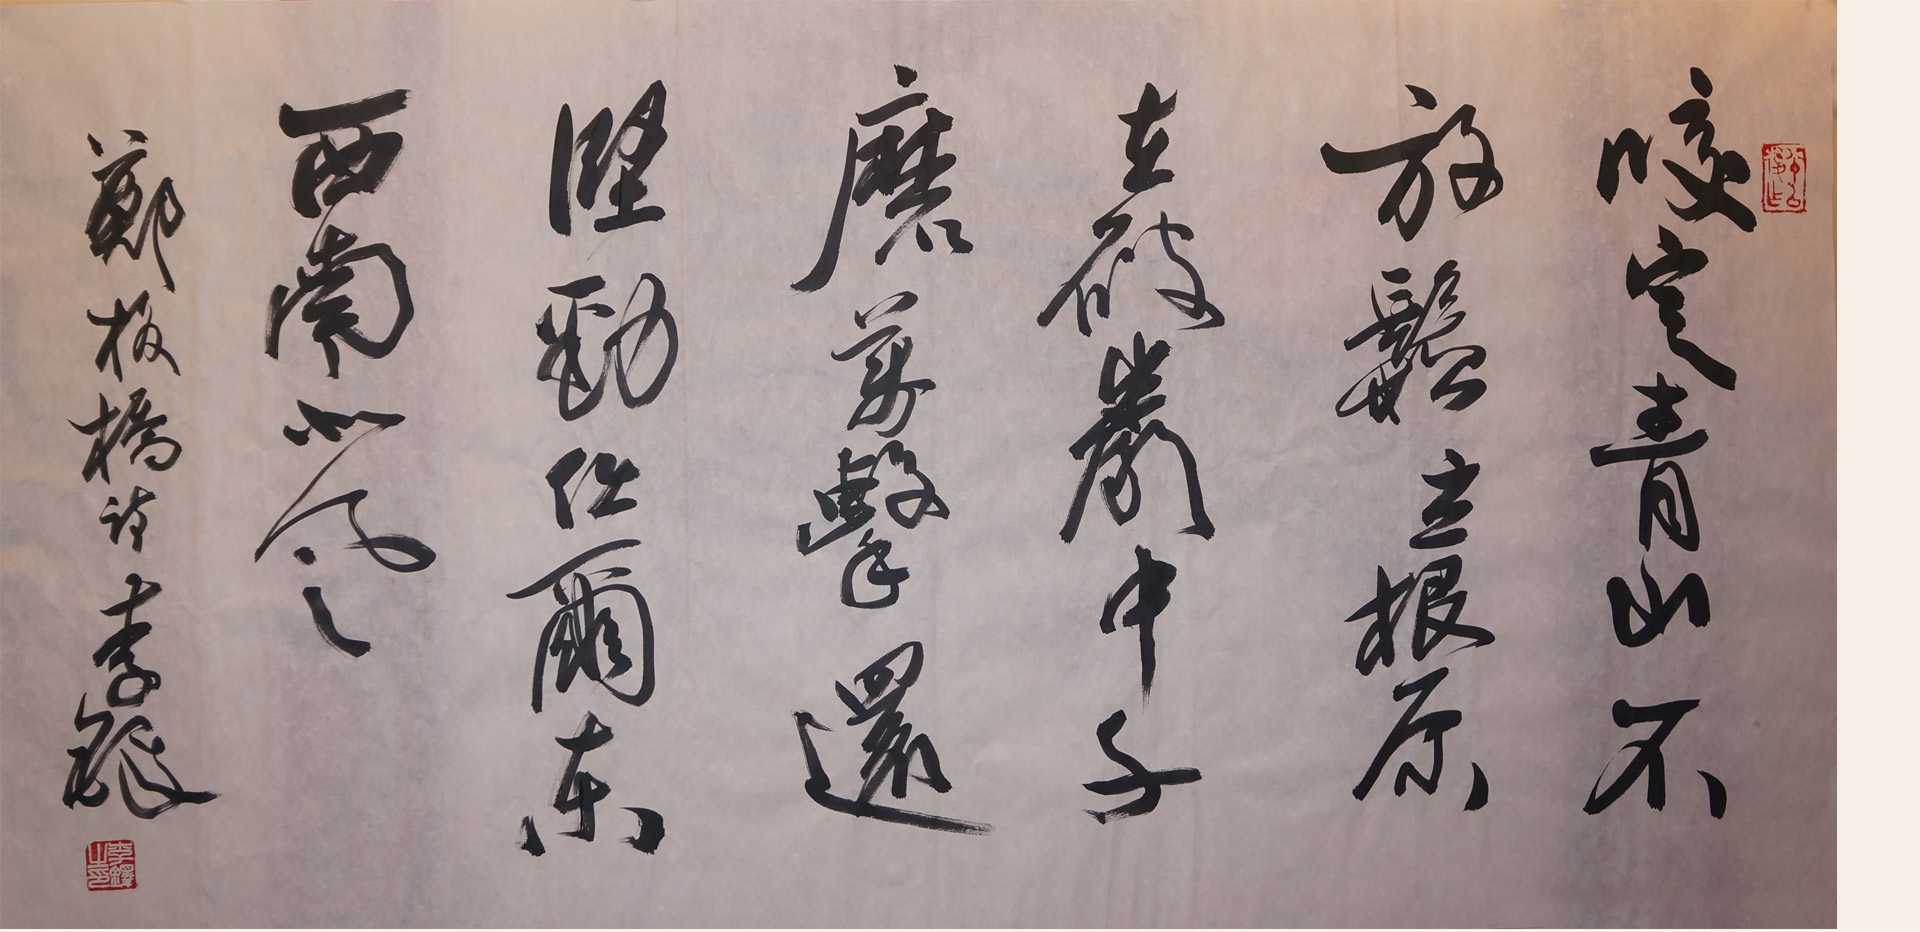 咬定青山不
放鬆立根原
在破巖中千
磨萬擊還
堅勁任爾東
西南北風
鄭板橋詩李鐸